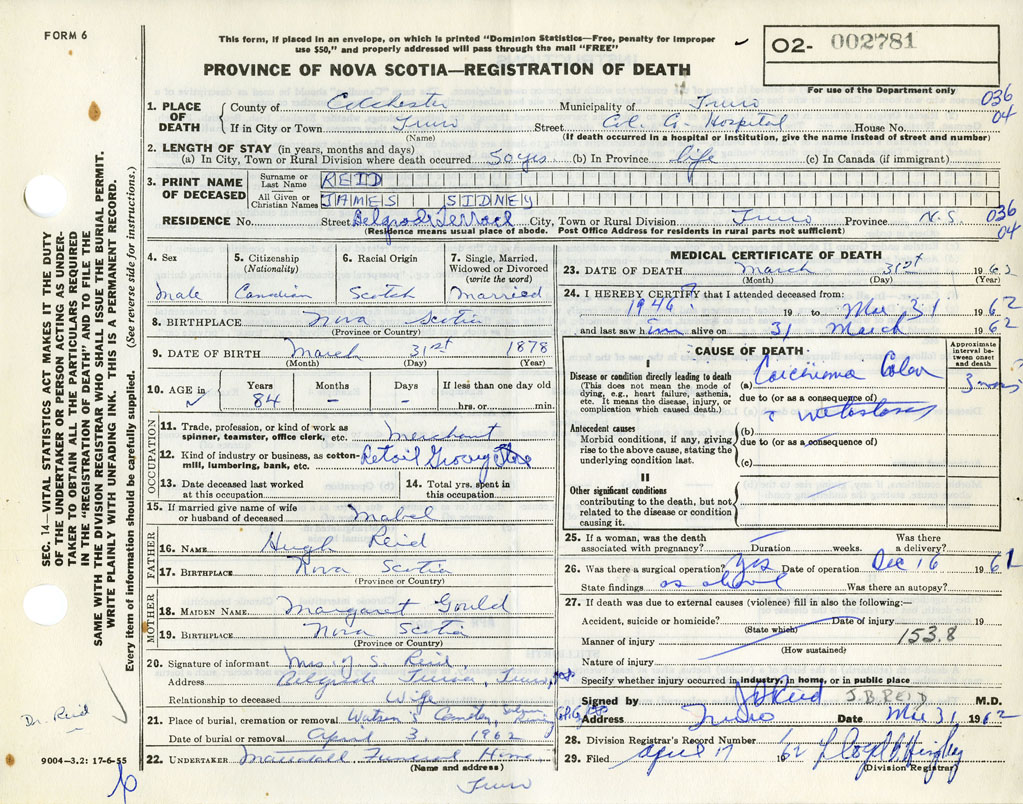 FORM 6
This form, if placed in an envelope, on which is printed "Dominion Statistics—Free, penalty for improper
use $50," and properly addressed will pass through the mail "FREE"
PROVINCE OF NOVA SCOTIA—REGISTRATION OF DEATH
O2- 002781
For use of the Department only
036
04
1. PLACE OF DEATH
County of Colchester Municipality of Truro
If in City or Town Truro Street Col. Co. Hospital House No.
(Name) (If death occurred in a hospital or institution, give the name instead of street and number)
2. LENGTH OF STAY (in years, months and days)
(a) In City, Town or Rural Division where death occurred 50 yrs. (b) In Province life (c) In Canada (if immigrant)
3. PRINT NAME OF DECEASED
Surname or Last Name REID
All Given or Christian Names JAMES SIDNEY
RESIDENCE No. Street Belgrade Terrace City, Town or Rural Division Truro Province N.S.
036
04
(Residence means usual place of abode. Post Office Address for residents in rural parts not sufficient)
4. Sex
Male
5. Citizenship (Nationality)
Canadian
6. Racial Origin
Scotch
7. Single, Married, Widowed or Divorced (write the word)
Married
8. BIRTHPLACE Nova Scotia
(Province or Country)
9. DATE OF BIRTH March 31st 1878
(Month) (Day) (Year)
10. AGE in Years Months Days If less than one day old
84 – – hrs. or min.
OCCUPATION
11. Trade, profession, or kind of work as
spinner, teamster, office clerk, etc. Merchant
12. Kind of industry or business, as cotton-
mill, lumbering, bank, etc. Retail Grocery Store
13. Date deceased last worked
at this occupation
14. Total yrs. spent in
this occupation
15. If married give name of wife
or husband of deceased Mabel
FATHER
16. NAME Hugh Reid
17. BIRTHPLACE Nova Scotia
(Province or Country)
MOTHER
18. MAIDEN NAME Margaret Gould
19. BIRTHPLACE Nova Scotia
(Province or Country)
20. Signature of informant Mrs. J. S. Reid
Address Belgrade Terrace, Truro,
Relationship to deceased Wife
21. Place of burial, cremation or removal Watson's Cemetery,
Date of burial or removal April 3, 1962
22. UNDERTAKER Mattatall Funeral Home
(Name and address)
Truro
MEDICAL CERTIFICATE OF DEATH
23. DATE OF DEATH March 31st 1962
(Month) (Day) (Year)
24. I HEREBY CERTIFY that I attended deceased from:
1946? 19 to Mar 31 1962
and last saw him alive on 31 March 1962
CAUSE OF DEATH
Approximate interval between onset and death
I
Disease or condition directly leading to death
(This does not mean the mode of
dying, e.g., heart failure, asthenia,
etc. It means the disease, injury, or
complication which caused death.)
(a) Carcinoma Colon 3 mos
due to (or as a consequence of)
c metastases
Antecedent causes
Morbid conditions, if any, giving
rise to the above cause, stating the
underlying condition last.
(b)
due to (or as a consequence of)
(c)
II
Other significant conditions
contributing to the death, but not
related to the disease or condition
causing it.
25. If a woman, was the death Was there
associated with pregnancy? Duration weeks. a delivery?
26. Was there a surgical operation? yes Date of operation Dec 16 1961
State findings as above Was there an autopsy?
27. If death was due to external causes (violence) fill in also the following:—
Accident, suicide or homicide? Date of injury 19
(State which)
Manner of injury 153.8
(How sustained)
Nature of injury
Specify whether injury occurred in industry, in home, or in public place
Signed by J B Reid J.B. REID M.D.
Address Truro Date Mar 31 1962
28. Division Registrar's Record Number
29. Filed April 17 1962
(Division Registrar)
SEC. 14—VITAL STATISTICS ACT MAKES IT THE DUTY
OF THE UNDERTAKER OR PERSON ACTING AS UNDER-
TAKER TO OBTAIN ALL THE PARTICULARS REQUIRED
IN THE "REGISTRATION OF DEATH" AND TO FILE THE
SAME WITH THE DIVISION REGISTRAR WHO SHALL ISSUE THE BURIAL PERMIT.
WRITE PLAINLY WITH UNFADING INK. THIS IS A PERMANENT RECORD.
Every item of information should be carefully supplied. (See reverse side for instructions.)
Dr. Reid
9004-3.2: 17-6-55